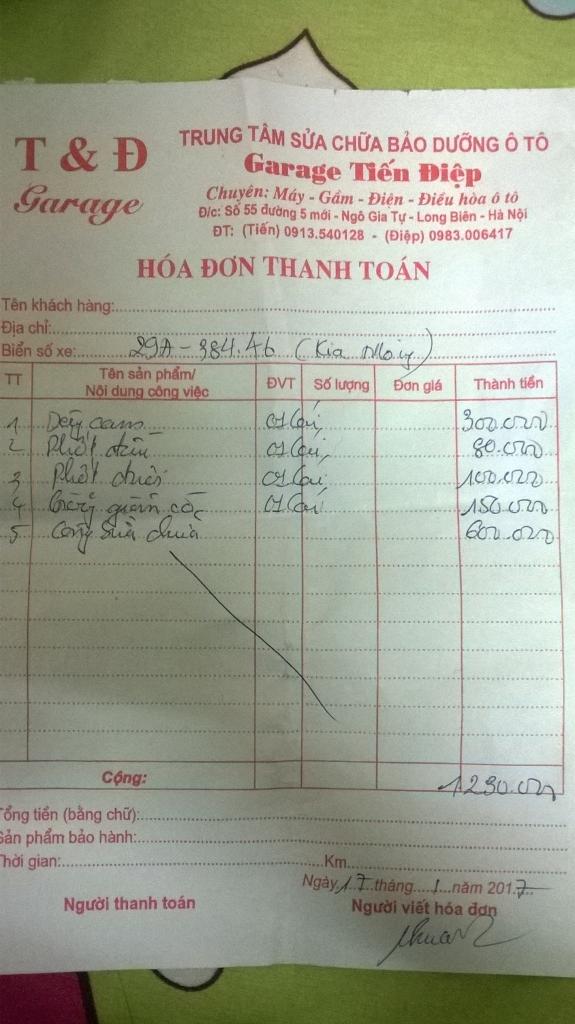 T & Đ
Garage
TRUNG TÂM SỬA CHỮA BẢO DƯỠNG Ô TÔ
Garage Tiến Điệp
Chuyên: Máy - Gầm - Điện - Điều hòa ô tô
Đ/c: Số 55 đường 5 mới - Ngô Gia Tự - Long Biên - Hà Nội
ĐT: (Tiến) 0913.540128 - (Điệp) 0983.006417
HÓA ĐƠN THANH TOÁN
Tên khách hàng:
Địa chỉ:
Biển số xe: 29A-384.46 (Kia Moning)
TT Tên sản phẩm/ Nội dung công việc ĐVT Số lượng Đơn giá Thành tiền
1 Dây cam 01 Cái 300.000
2 Phớt đầu 01 Cái 80.000
3 Phớt đuôi 01 Cái 100.000
4 giảm 01 Cái 150.000
5 Công sửa chữa 600.000
Cộng: 1230.000
Tổng tiền (bằng chữ):
Sản phẩm bảo hành:
Thời gian: Km
Ngày 17 tháng 1 năm 2017
Người thanh toán Người viết hóa đơn